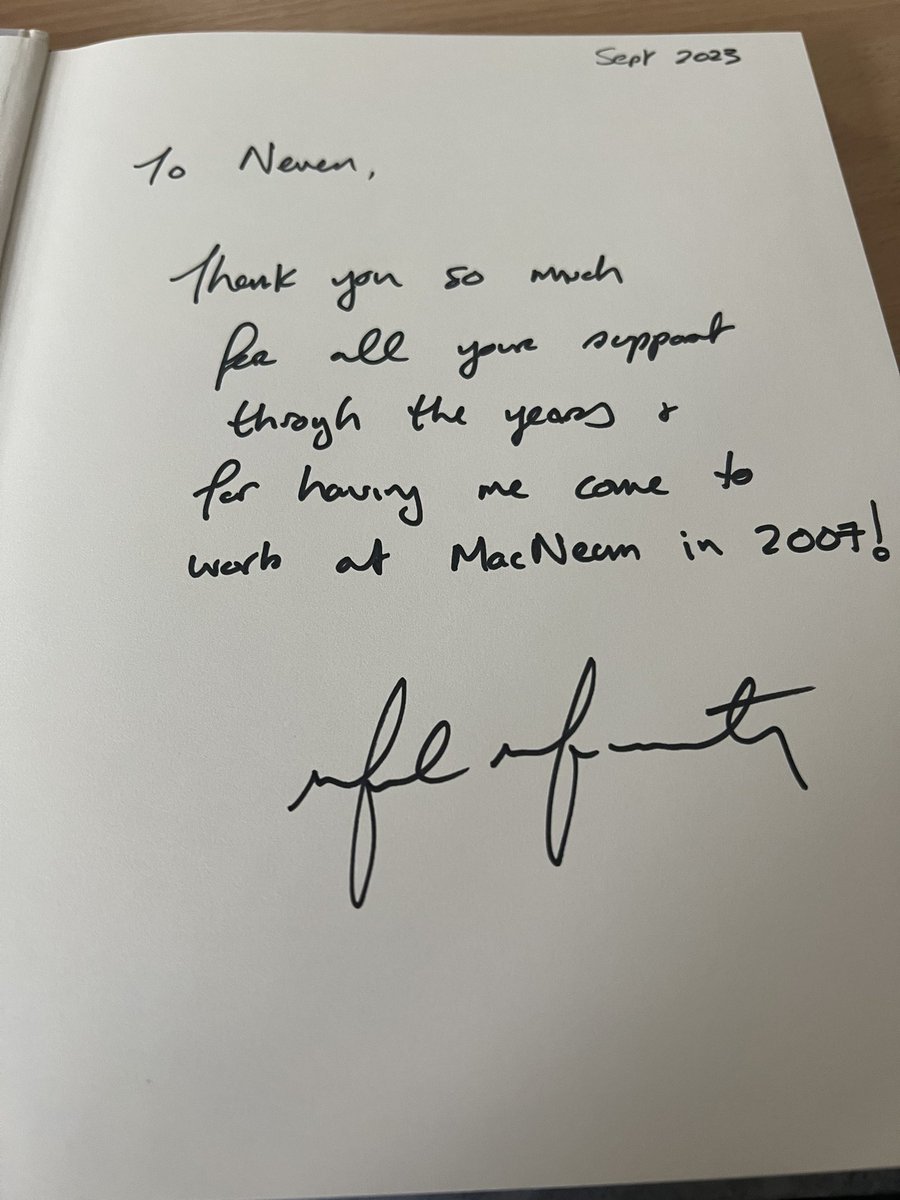 Sept 2023
To Neven,
Thank you so much
for all your support
through the years &
for having me come to
work at MacNean in 2007!